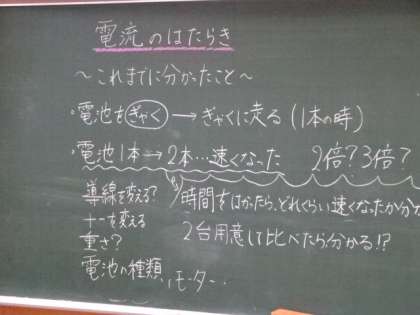 電流のはたらき
～これまでに分かったこと～
・電池をぎゃく→ぎゃくに走る(1本の時)
・電池1本→2本…速くなった 2倍?3倍?
時間をはかったら、どれくらい速くなったか分か
導線を変える?
＋－を変える
2台用意して比べたら分かる!?
重さ?
電池の種類、モーター…